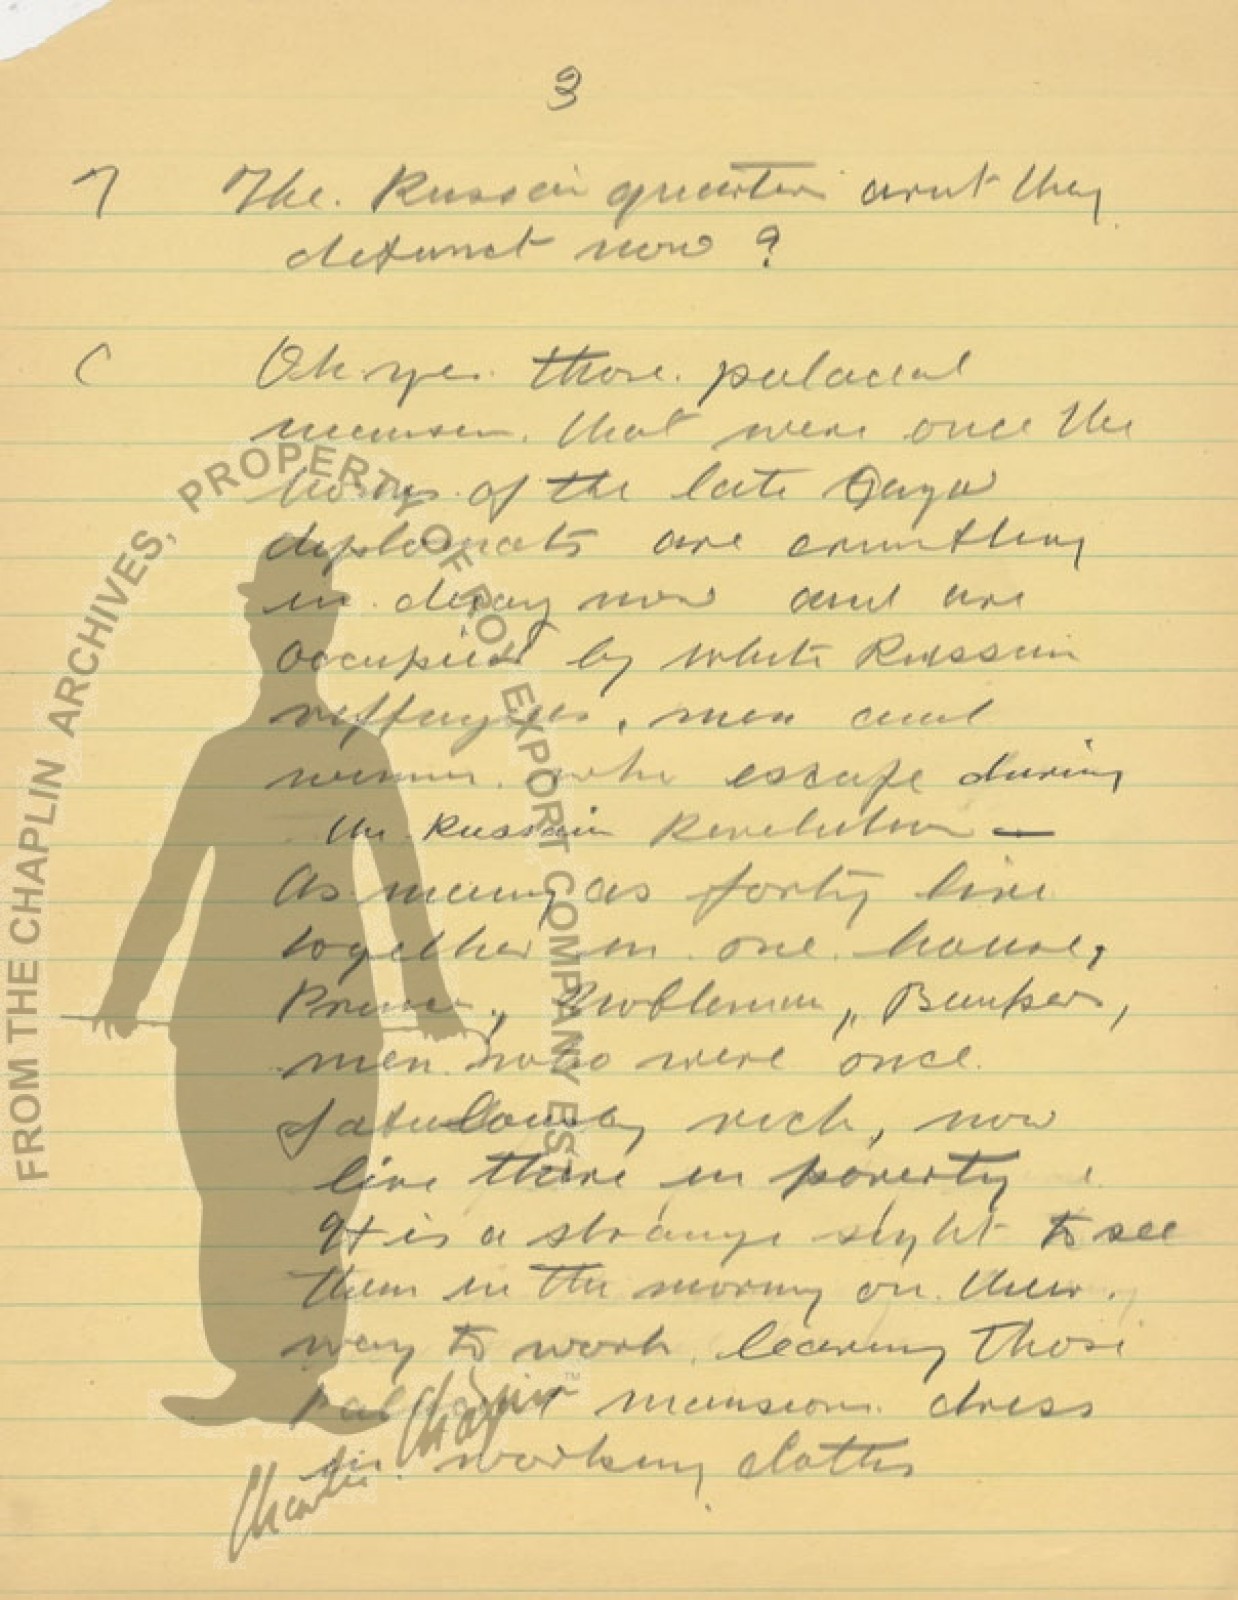 3
7 The. Russain quarters arnt they
defunct now ?
C Oh. yes. those. palacial
mansion. that were once the
homes. of the late
diplomats are crumbling
in. decay now and are
occupied by white Russain
reffugees, men and
women. who escape during
the. Russain Revolution —
As many as forty live
together in. one. house,
Prince, Nobleman, Bankers,
men. who were once
fabulously rich, now
live there in poverty
It is a strange sight to see
them in the morning on. their.
way to work, leaving those
mansions. dress
in. working cloths
FROM THE CHAPLIN ARCHIVES, PROPERTY OF ROY EXPORT COMPANY EST
Charlie Chaplin
TM